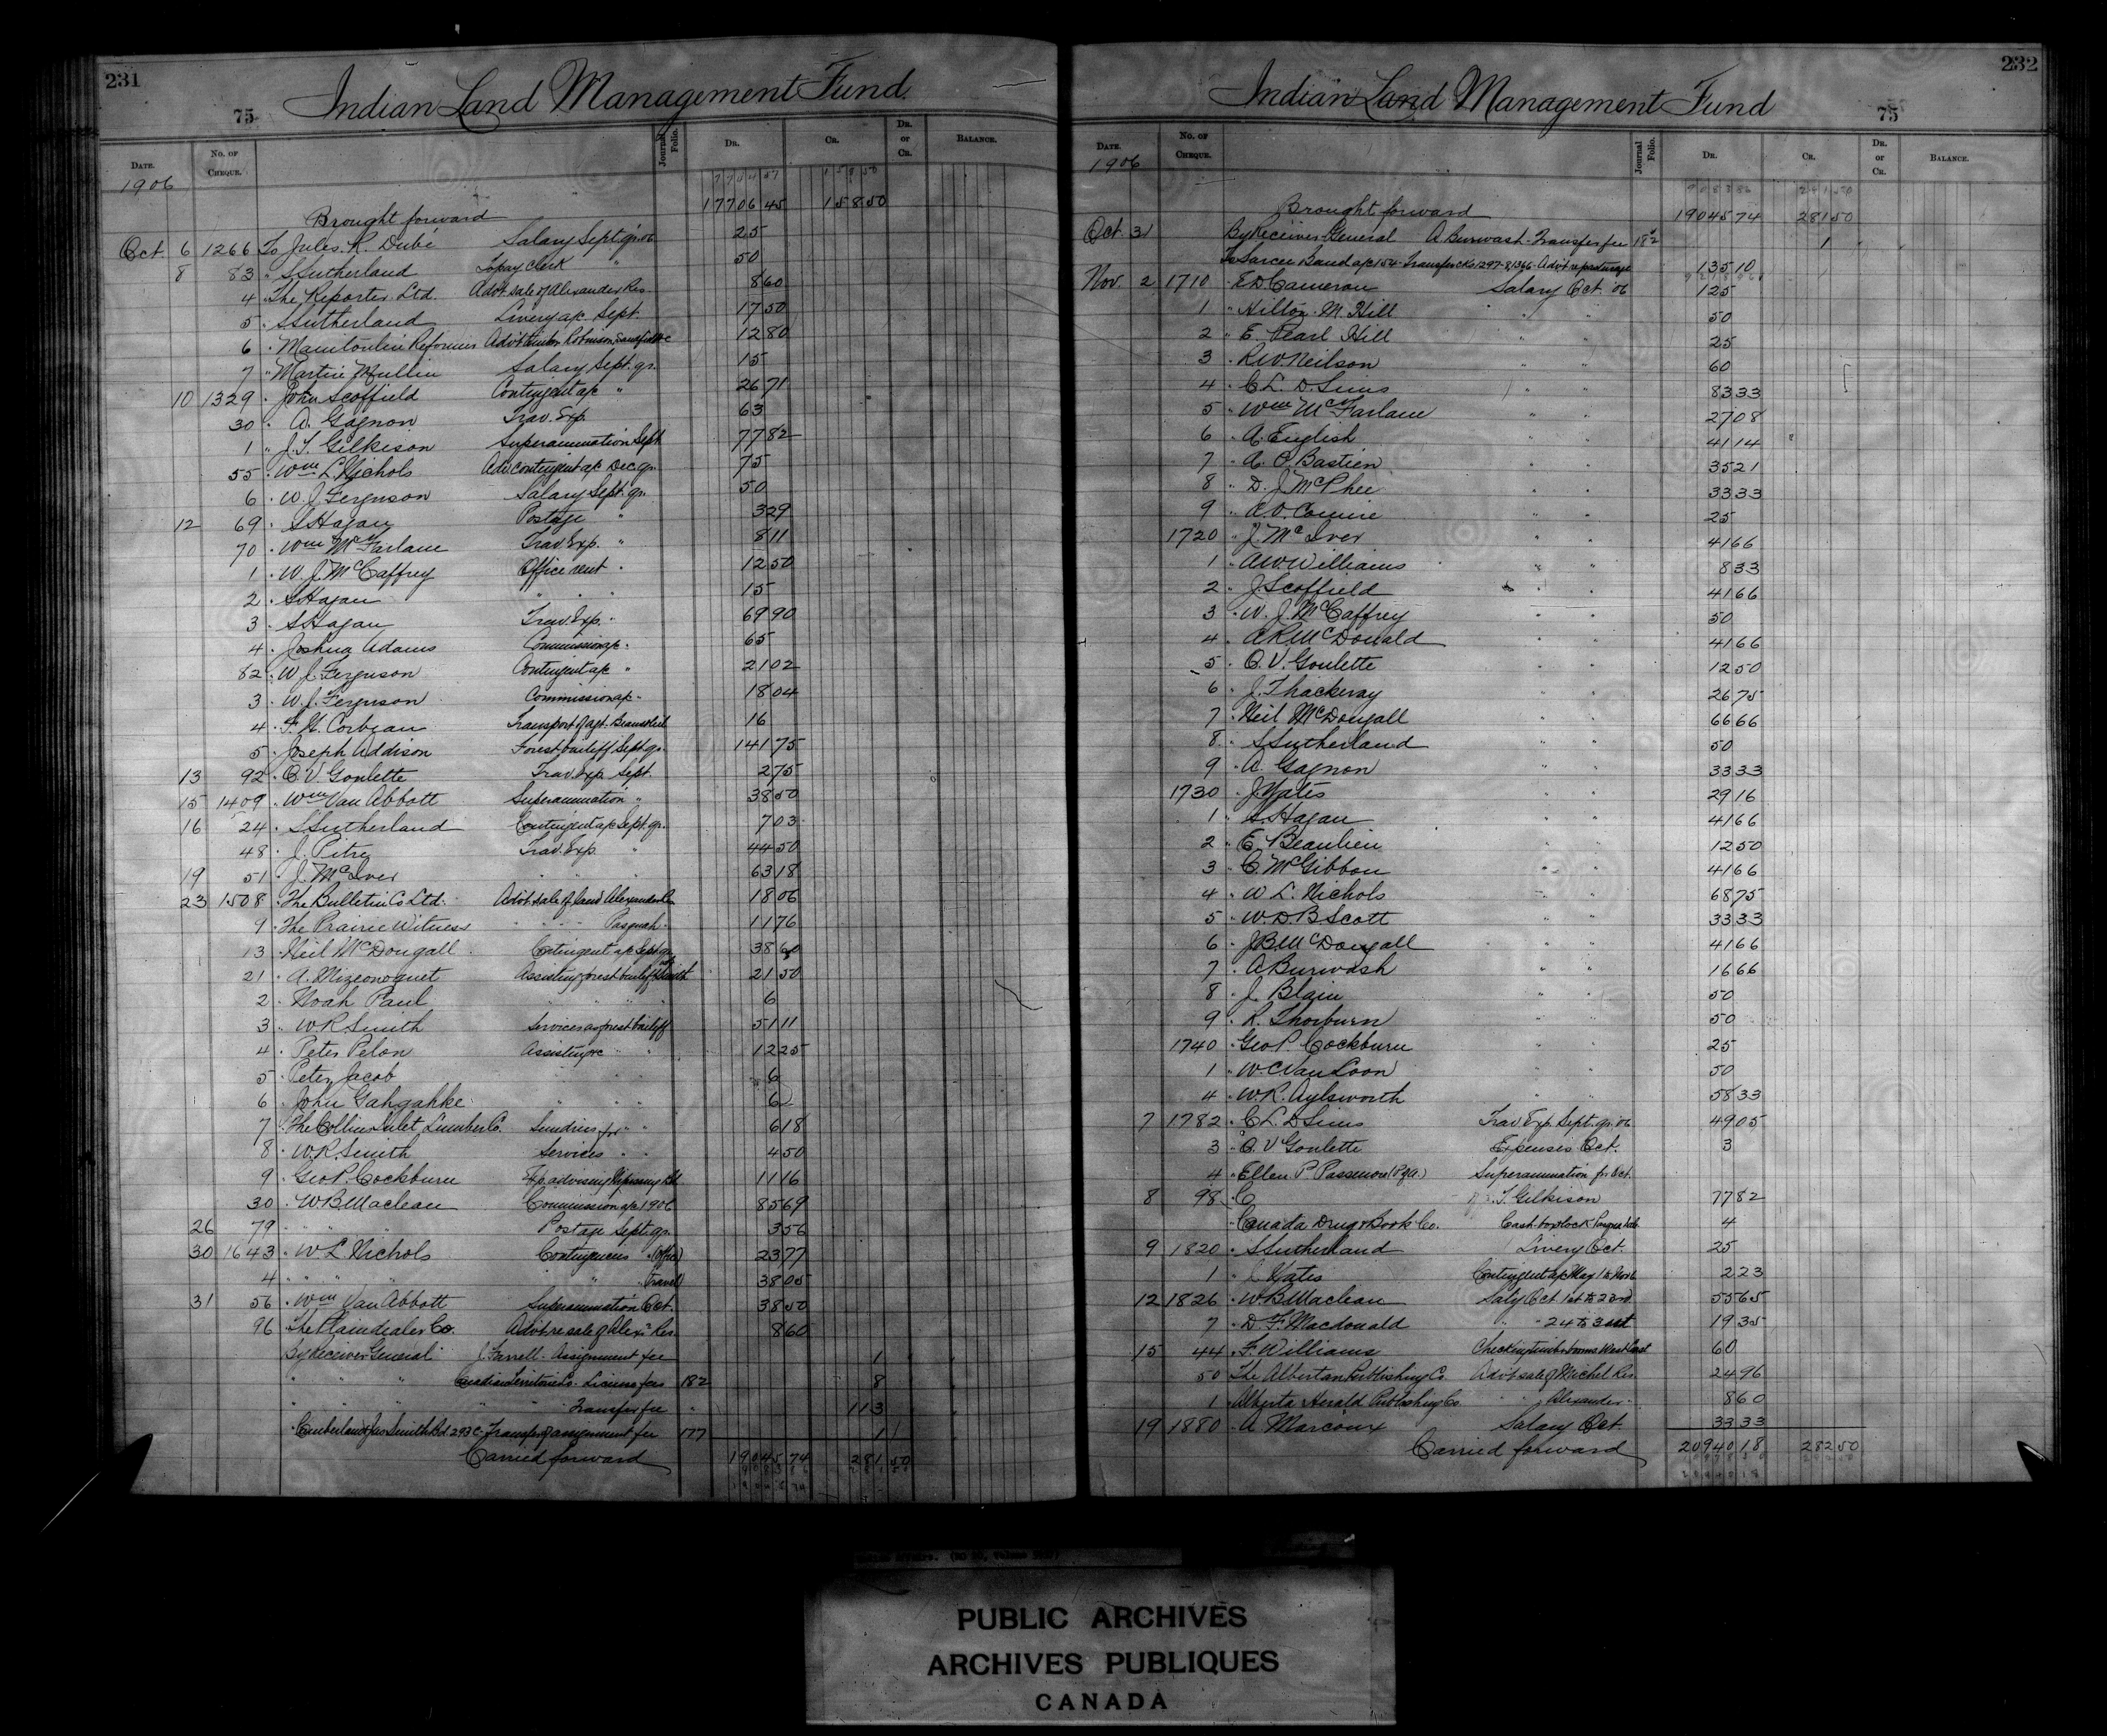 231
75
Indian Land Management Fund.
DATE.
No. OF CHEQUE.
Journal Folio.
DR.
CR.
DR. or CR.
BALANCE.
1906
Brought forward 17706 45 158 50
Oct. 6 1266 To Jules R. Dubé Salary Sept. qr. 06 25
8 83 " S Sutherland To pay Clerk 50
4 " The Reporter Ltd. Advt sale of Alexander Res. 8 60
5 " S Sutherland Livery a/c Sept 17 50
6 " Manitoulin Reformer 12 80
7 " Martin Mullin Salary Sept. qr. 15
10 1329 " John Scoffield Contingent a/c " 26 71
30 " A. Gagnon Trav. Exp. 63
1 " J. T. Gilkison Superannuation Sept. 77 82
55 " Wm L. Nichols Adv. contingent a/c Dec. qr. 75
6 " W. J. Ferguson Salary Sept. qr. 50
12 69 " S Hagan Postage " 3 29
70 " Wm McFarlane Trav. Exp. " 8 11
1 " W. J. McCaffrey Office rent " 12 50
2 " S Hagan " " 15
3 " S Hagan Trav. Exp. " 69 90
4 " Joshua Adams Commission a/c " 65
82 " W J Ferguson Contingent a/c " 21 02
3 " W. J. Ferguson Commission a/c " 18 04
4 " F. H. Corbeau Transport of agt. 16
5 " Joseph Addison Forest bailiff Sept. qr. 141 75
13 92 " C. V. Goulette Trav. Exp. Sept. 2 75
15 1409 " Wm Van Abbott Superannuation " 38 50
16 24 " S Sutherland Contingent a/c Sept. qr. 7 03
48 " J. Pitre Trav. Exp. " 44 50
19 51 " J. McIver " " " 63 18
23 1508 " The Bulletin Co Ltd. Advt sale of land Alexander Res 18 06
9 " The Prairie Witness " " " Pasquah " 11 76
13 " Neil McDougall Contingent a/c Sept qr. 38 60
21 " A. Mizeonoquet Assisting forest bailiff Smith 21 50
2 " Noah Paul " " " " 6
3 " W. R Smith Services as forest bailiff 51 11
4 " Peter Pelon Assisting &c " " 12 25
5 " Peter Jacob " " " 6
6 " John Gahgahke " " " 6
7 " The Collins Inlet Lumber Co. Sundries for " " 6 18
8 " W. R. Smith Services " " 4 50
9 " Geo P. Cockburn 11 16
30 " W. B. Maclean Commission a/c 1906 85 69
26 79 " " " Postage Sept. qr. 3 56
30 1643 " W L Nichols Contingencies " (office) 23 77
4 " " " " " (travel) 38 05
31 56 " Wm Van Abbott Superannuation Oct. 38 50
96 " The Plaindealer Co. Advt re sale of Alexr Res. 8 60
By Receiver General J. Farrell - Assignment fee 1
" " " Canadian Territories Co. Licence fees 182 8
" " " " " Transfer fee " 113
" Cumberland & Jas Smith Bd 293 C. Transfer of assignment fee 177 1
Carried forward 19045 74 281 50
232
75
Indian Land Management Fund
DATE.
No. OF CHEQUE.
Journal Folio.
DR.
CR.
DR. or CR.
BALANCE.
1906
Brought forward 19045 74 281 50
Oct. 31 By Receiver General A. Burwash - Transfer fee 182 1
To Sarcee Band a/c 154 - Transfer cks 1297-8, 1366 - 135 10
Nov. 2 1710 " E D. Cameron Salary Oct. '06 125
1 " Hilton M. Hill " " 50
2 " E. Pearl Hill " " 25
3 " R W. Neilson " " 60
4 " C. L. D. Sims " " 83 33
5 " Wm McFarlane " " 27 08
6 " A. English " " 41 14
7 " A. O. Bastien " " 35 21
8 " D. J. McPhee " " 33 33
9 " A. V. Comire " " 25
1720 " J. McIver " " 41 66
1 " A W Williams " " 8 33
2 " J Scoffield " " 41 66
3 " W. J. McCaffrey " " 50
4 " A R McDonald " " 41 66
5 " C. V. Goulette " " 12 50
6 " J. Thackeray " " 26 75
7 " Neil McDougall " " 66 66
8 " S Sutherland " " 50
9 " A. Gagnon " " 33 33
1730 " J Yates " " 29 16
1 " S. Hagan " " 41 66
2 " E. Beaulieu " " 12 50
3 " C. McGibbon " " 41 66
4 " W L. Nichols " " 68 75
5 " W. D. B Scott " " 33 33
6 " J B. McDougall " " 41 66
7 " A Burwash " " 16 66
8 " J. Blain " " 50
9 " R. Thorburn " " 50
1740 " Geo P. Cockburn " " 25
1 " W. C Van Loon " " 50
4 " W. R. Aylsworth " " 58 33
7 1782 " C L. D Sims Trav Exp. Sept. qr. 06 49 05
3 " C. V Goulette Expenses Oct. 3
4 " Ellen P Passmore (P of A.) Superannuation for Oct.
8 98 " C T. Gilkison 77 82
" Canada Drug & Book Co. 4
9 1820 " S Sutherland Livery Oct. 25
1 " J Yates Contingent a/c May 1 to Nov 2 23
12 1826 " W. B Maclean Saly Oct 1st to 23rd 55 65
7 " D. F Macdonald " " 24 to 31st 19 35
15 44 " F. Williams 60
50 The Albertan Publishing Co. Advt sale of Michel Res. 24 96
1 " Alberta Herald Publishing Co. " " Alexander " 8 60
19 1880 " A Marcoux Salary Oct. 33 33
Carried forward 20940 18 282 50
PUBLIC ARCHIVES
ARCHIVES PUBLIQUES
CANADA